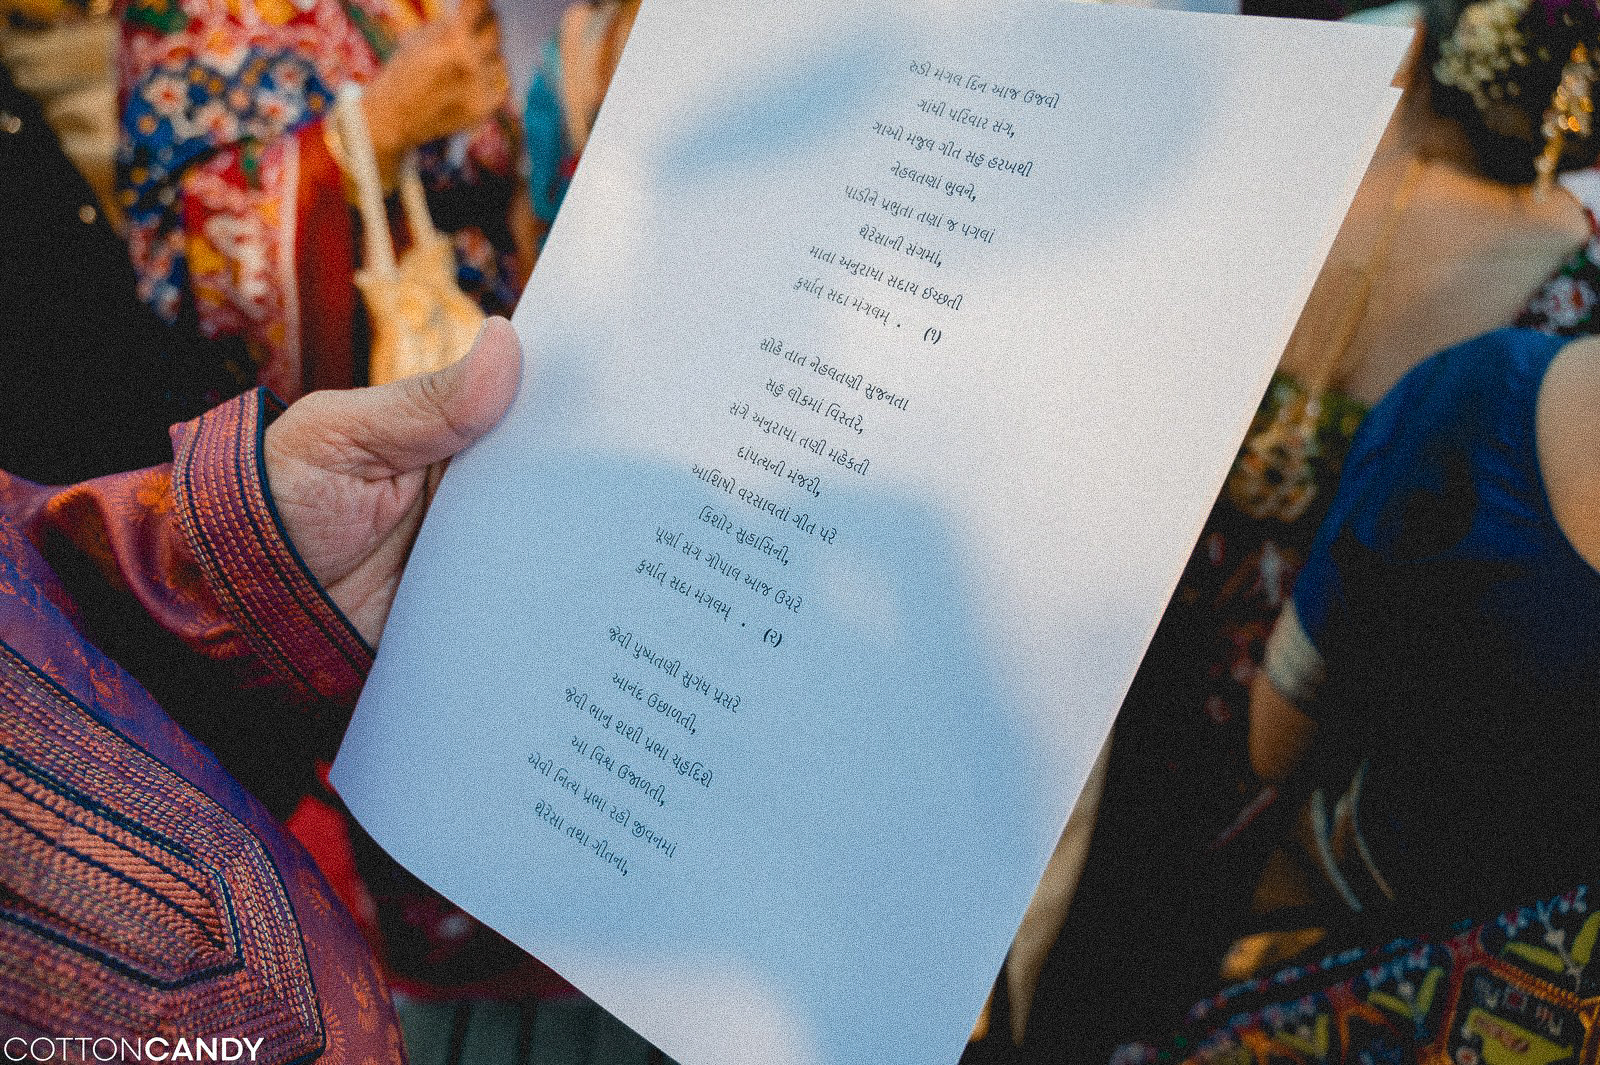 રુડો મંગલ દિન આજ ઉજવો
ગાંધી પરિવાર સંગ,
ગાઓ મંજુલ ગીત સહુ હરખથી
નેહલતણાં ભુવને,
પાડીને પ્રભુતા તણાં જ પગલાં
થેરેસાની સંગમાં,
માતા અનુરાધા સદાય ઈચ્છતી
કુર્યાત્ સદા મંગલમ્ . (૧)
સોહે તાત નેહલતણી સુજનતા
સહુ લોકમાં વિસ્તરે,
સંગે અનુરાધા તણી મહેકતી
દાંપત્યની મંજરી,
આશિષો વરસાવતાં ગીત પરે
કિશોર સુહાસિની,
પૂર્ણા સંગ ગોપાલ આજ ઉચરે
કુર્યાત્ સદા મંગલમ્ . (૨)
જેવી પુષ્પતણી સુગંધ પ્રસરે
આનંદ ઉછાળતી,
જેવી ભાનુ શશી પ્રભા ચહુદિશે
આ વિશ્વ ઉજાળતી,
એવી નિત્ય પ્રભા રહો જીવનમાં
થેરેસા તથા ગીતના,
COTTONCANDY